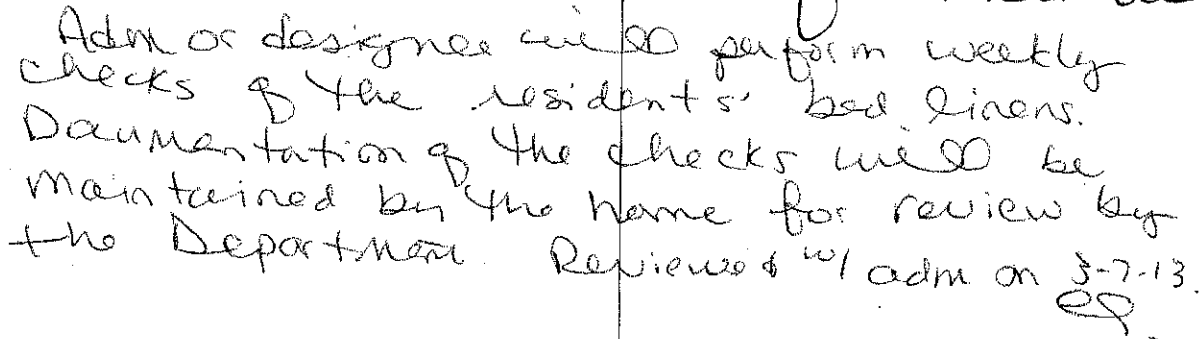 Adm or designee will perform weekly
checks of the residents' bed linens.
Documentation of the checks will be
maintained by the home for review by
the Department. Reviewed w/ adm on 3-7-13.